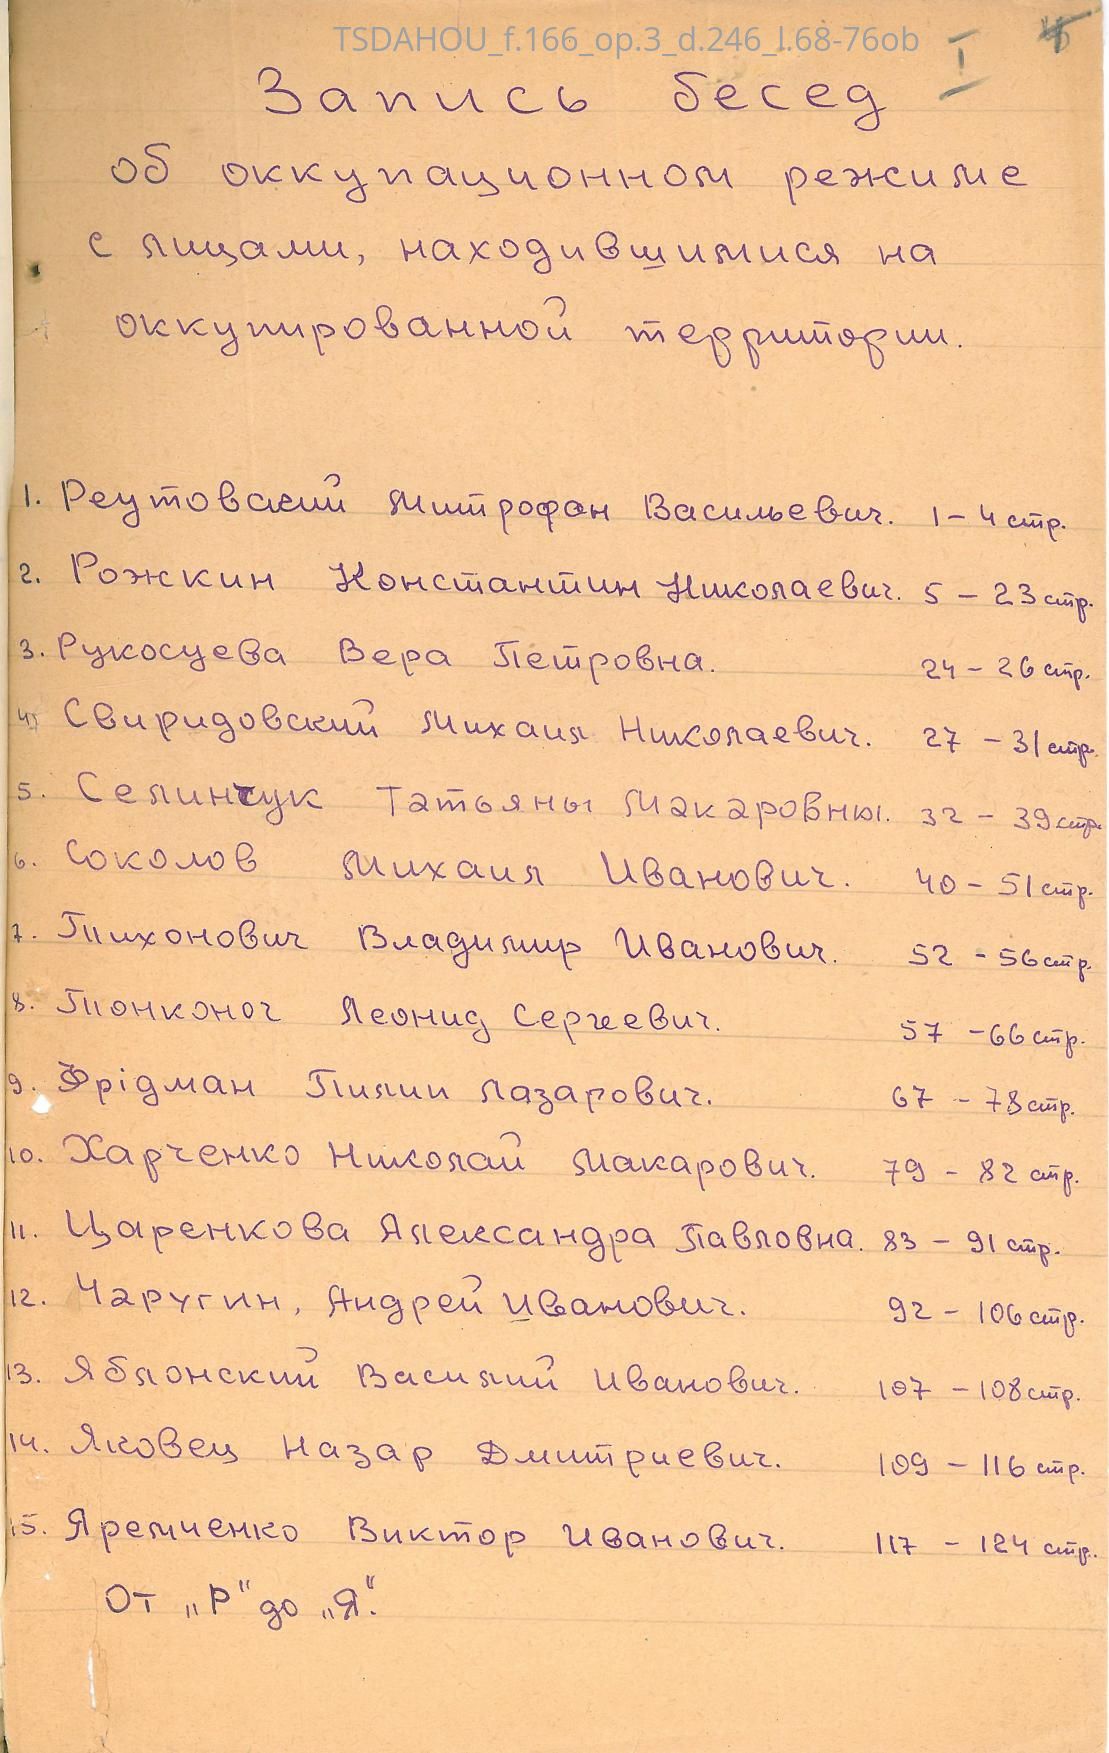 TSDAHOU_f.166_op.3_d.246_l.68-76ob
I
Запись бесед
об оккупационном режиме
с лицами, находившимися на
оккупированной территории.
1. Реутовский Митрофан Васильевич. 1 – 4 стр.
2. Рожкин Константин Николаевич. 5 – 23 стр.
3. Рукосуева Вера Петровна. 24 – 26 стр.
4. Свиридовский Михаил Николаевич. 27 – 31 стр.
5. Селинчук Татьяны Макаровны. 32 – 39 стр.
6. Соколов Михаил Иванович. 40 – 51 стр.
7. Тихонович Владимир Иванович. 52 - 56 стр.
8. Тонконог Леонид Сергеевич. 57 - 66 стр.
9. Фрідман Пилип Лазарович. 67 - 78 стр.
10. Харченко Николай Макарович. 79 - 82 стр.
11. Царенкова Александра Павловна. 83 – 91 стр.
12. Чаругин, Андрей Иванович. 92 – 106 стр.
13. Яблонский Василий Иванович. 107 – 108 стр.
14. Яковец Назар Дмитриевич. 109 – 116 стр.
15. Яремченко Виктор Иванович. 117 - 124 стр.
От „Р" до „Я".